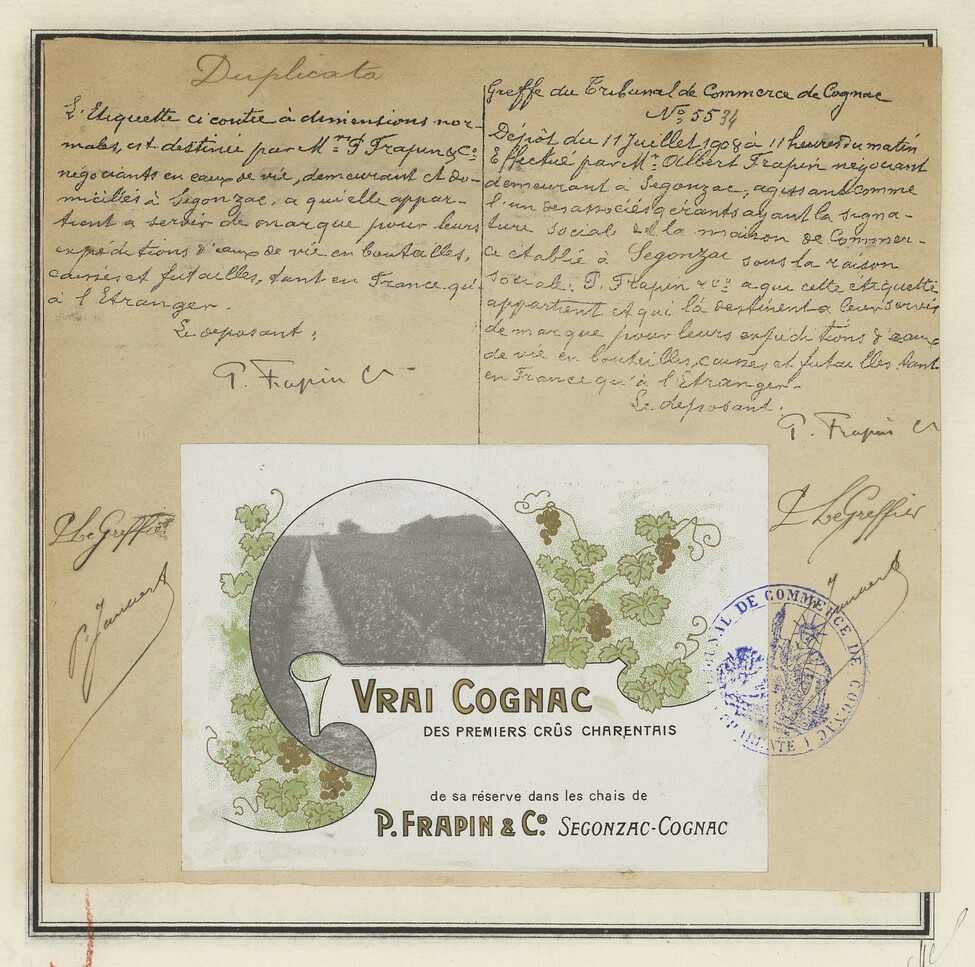 Duplicata
L'Etiquette ci contre à dimensions nor-
males, est destinée par Mrs P. Frapin & Co
négociants en eaux de vie, demeurant et do-
micillés à Segonzac, a qui elle appar-
tient a servir de marque pour leurs
expéditions d'eaux de vie en bouteilles,
caisses et futailles, tant en France qu'
à l'Etranger.
Le deposant:
P. Frapin Co
Greffe du Tribunal de Commerce de Cognac
No 5534
Dépôt du 11 Juillet 1908 à 11 heures du matin
Effectué par Mr. Albert Frapin négociant
demeurant à Segonzac, agissant comme
l'un des associés gérants ayant la signa-
ture sociale de la maison de Commer-
ce établie à Segonzac sous la raison
sociale: P. Frapin & Co a qui cette étiquette
appartient et qui la destinent a leur servir
de marque pour leurs expéditions d'eaux
de vie en bouteilles, caisses et futailles tant
en France qu'à l'Etranger.
Le deposant.
P. Frapin Co
P Le Greffier
P Le Greffier
VRAI COGNAC
DES PREMIERS CRÛS CHARENTAIS
de sa réserve dans les chais de
P. FRAPIN & Co. SEGONZAC-COGNAC
TRIBUNAL DE COMMERCE DE COGNAC
(CHARENTE)